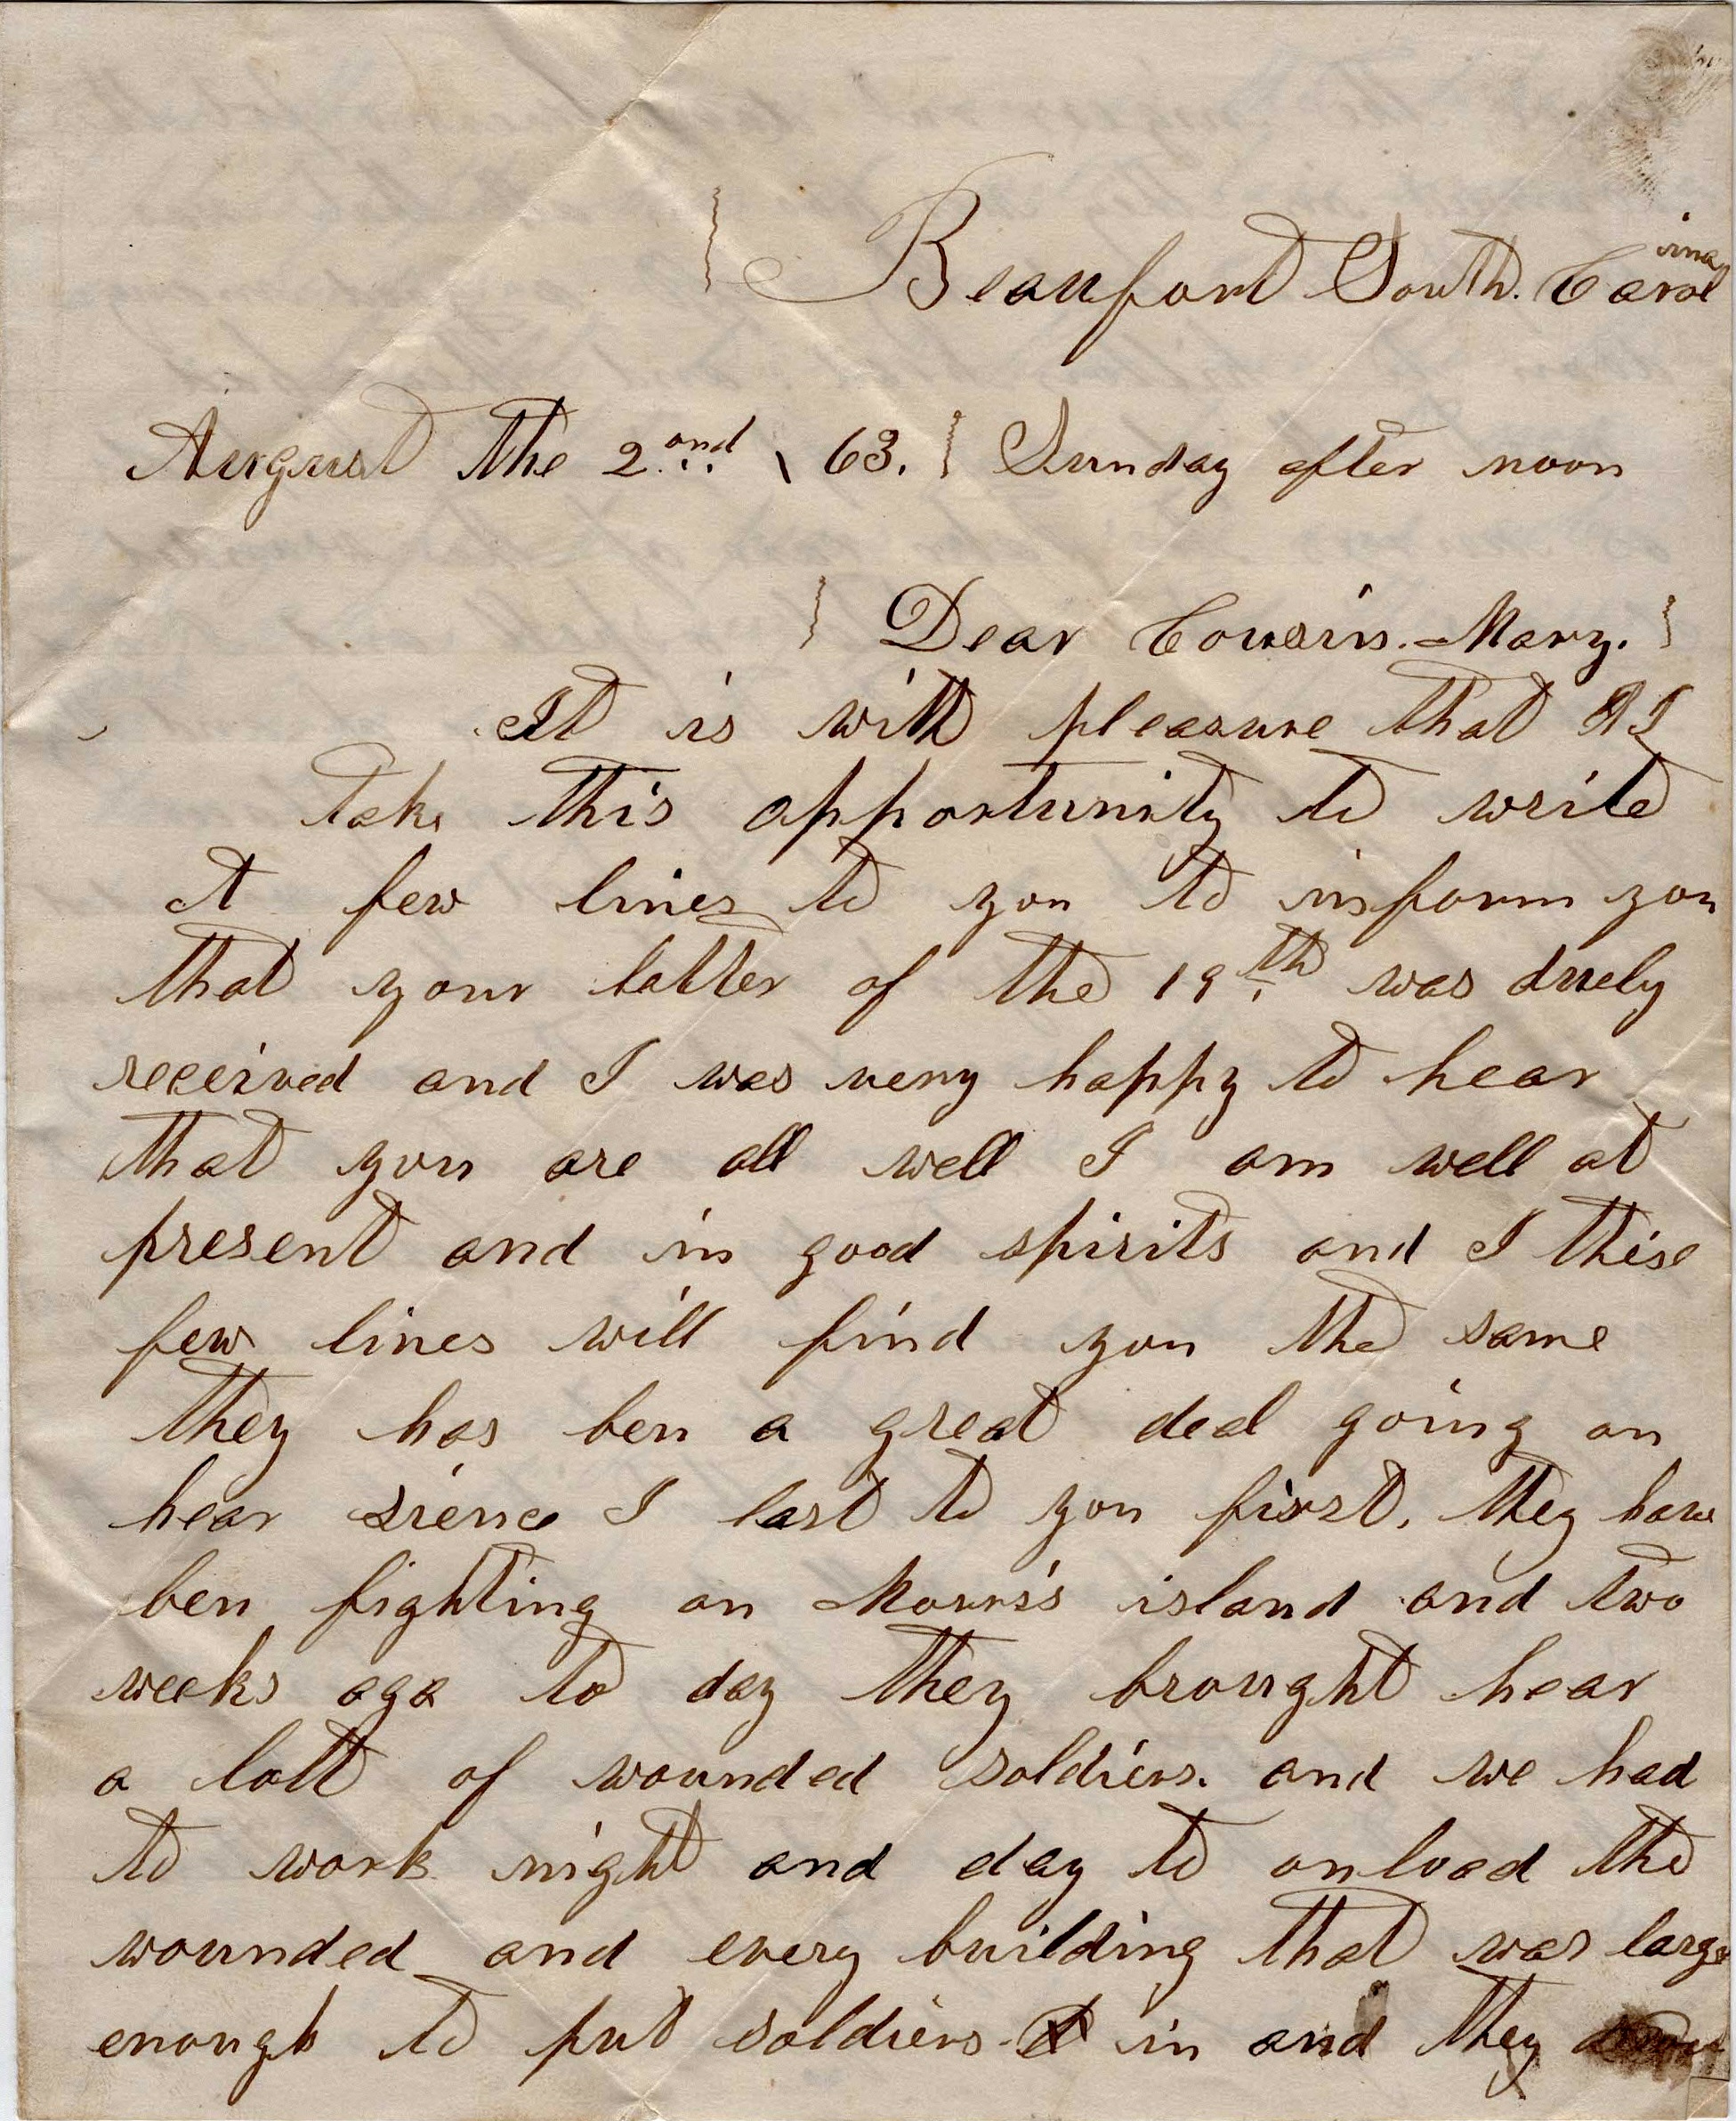 Beaufort South. Carolina
August the 2.and \ 63. Sunday after noon
Dear Cousin. Mary.
It is with pleasure that I
take this opportunity to write
A few lines to you to inform you
that your latter of the 19th was duely
received and I was very happy to hear
that you are all well I am well at
present and in good spirits and I thise
few lines will find you the same
they has ben a great deal going on
hear sience I last to you first. they have
ben fighting on Morris's island and two
weeks ago to day they brought hear
a lott of wounded soldiers. and we had
to work night and day to onload the
wounded and every building that was large
enough to put soldiers in and they